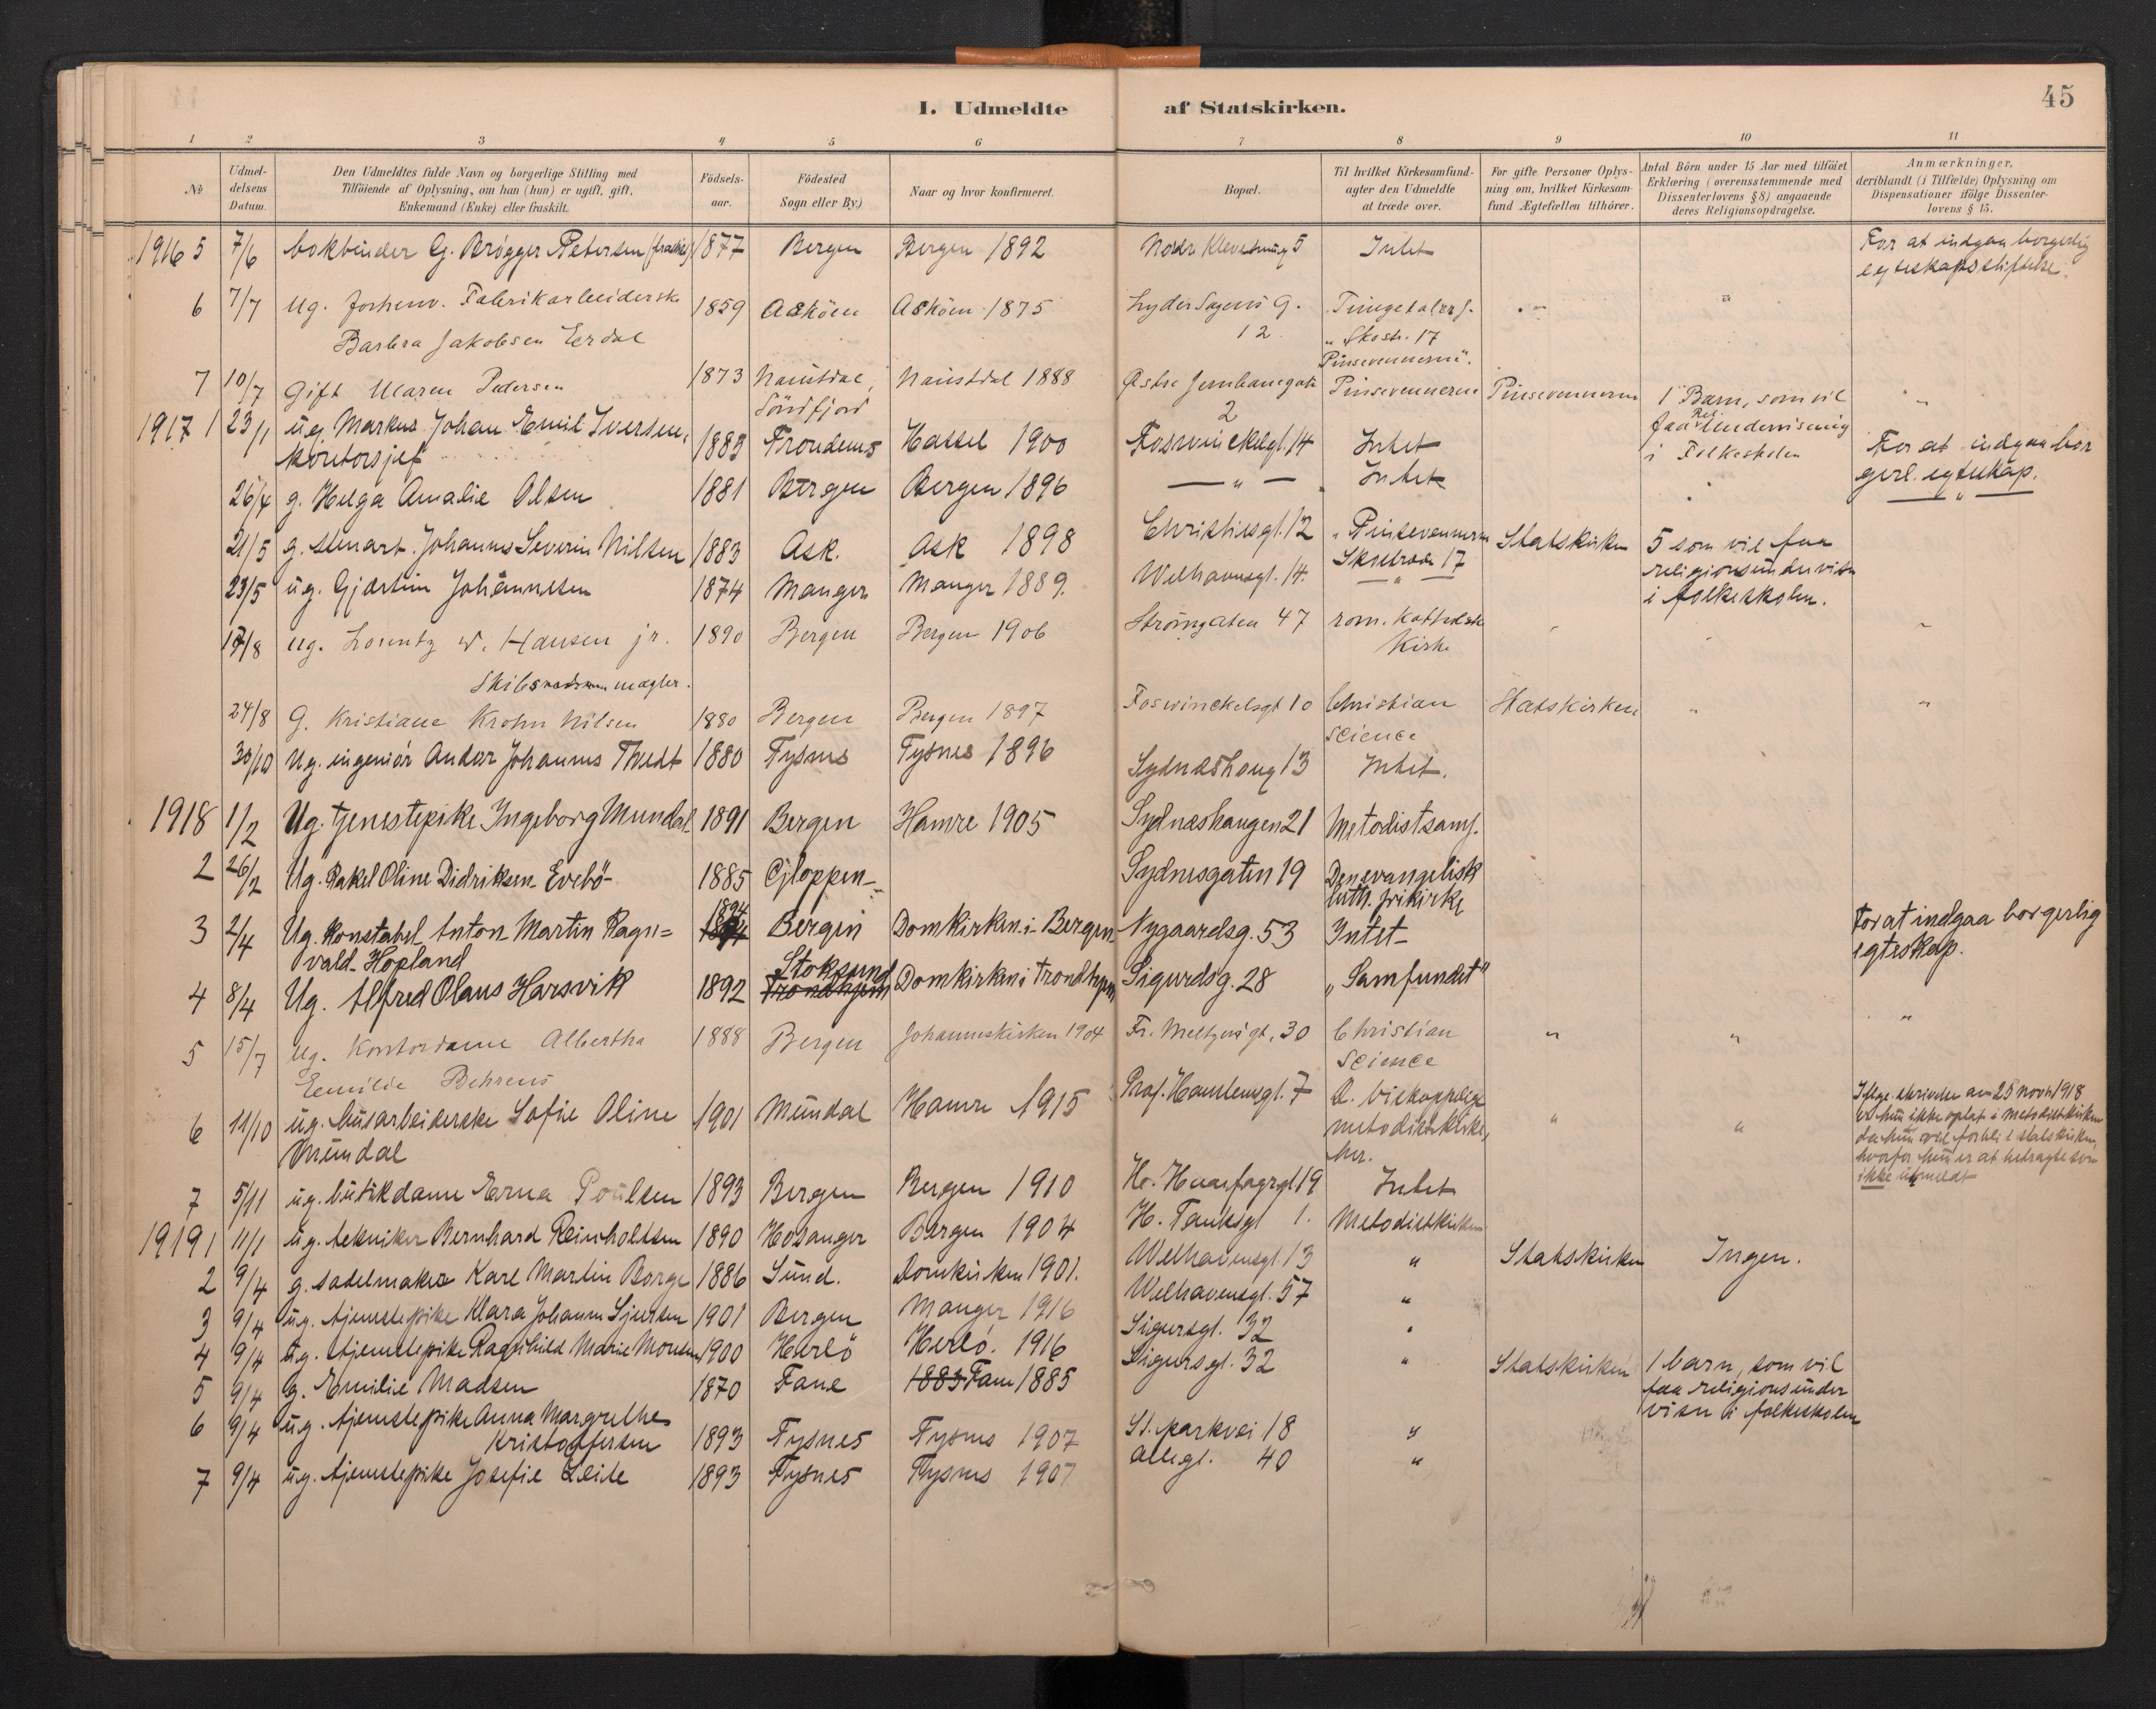 45
I. Udmeldte af Statskirken.
1 2 3 4 5 6 7 8 9 10 11
№
Udmel-
delsens
Datum.
Den Udmeldtes fulde Navn og borgerlige Stilling med
Tilføiende af Oplysning, om han (hun) er ugift, gift,
Enkemand (Enke) eller fraskilt.
Födsels-
aar.
Födested
Sogn eller By.)
Naar og hvor konfirmeret.
Bopæl.
Til hvilket Kirkesamfund-
agter den Udmeldte
at træde over.
For gifte Personer Oplys-
ning om, hvilket Kirkesam-
fund Ægtefællen tilhörer.
Antal Börn under 15 Aar med tilföiet
Erklæring (overensstemmende med
Dissenterlovens § 8) angaaende
deres Religionsopdragelse.
Anmærkninger,
deriblandt (i Tilfælde) Oplysning om
Dispensationer ifölge Dissenter-
lovens § 15.
1916 5 7/6 bokbinder G. Brøgger Petersen (fraskilt) 1877 Bergen Bergen 1892 5 Intet For at indgaa borgerlig
egteskapsstiftelse.
6 7/7 Ug. forhenv. Fabrikarbeiderske 1859 Asköen Asköen 1875 Lyder Sagens G. "
Barbra Jakobsen Eerdal 12 " Skostr. 17
Pinsevennerne".
7 10/7 Gift Maren Pedersen 1873 Naustdal, Naustdal 1888 Østre Jernbanegate Pinsevennerne Pinsevennerne 1 Barn, som vil "
Söndfjord 2 faa Rel. Undervisning
1917 1 23/1 ug. Markus Johan Emil Iversen, 1883 Trondenes Hassel 1900 Fosswinckelsgt. 14 Intet i Folkeskolen For at indgaa bor
kontorsjef gerl. egteskap.
26/4 g. Helga Amalie Olsen 1881 Bergen Bergen 1896 — " — Intet — " —
21/5 g. stuart. Johannes Severin Nilsen 1883 Ask. Ask 1898 Christiesgt. 12 "Pinsevennerne Statskirken 5 som vil faa
Skostræde 17 religionsundervisn
23/5 ug. Gjertine Johannesen 1874 Manger Manger 1889. Welhavensgt. 14. — " — i folkeskolen.
17/8 ug. Lorentz W. Hansen jr. 1890 Bergen Bergen 1906 Strömgaten 47 rom. Katholske " " "
Kirke
mægler.
24/8 G. Kristiane Krohn Nilsen 1880 Bergen Bergen 1897 Foswinckelsgt 10 Christian Statskirken " "
Science
30/10 Ug. ingeniør Andor Johannes Thvedt 1880 Tysnes Tysnes 1896 Sydneshaug 13 Intet.
1918 1/2 Ug. tjenestepike Ingeborg Mundal 1891 Bergen Hamre 1905 Sydneshaugen 21 Metodistsamf.
2 26/2 Ug. Rakel Oline Didriksen Evebö 1885 Gjloppen Sydnesgaten 19 Den evangelisk
luth. frikirke
3 2/4 Ug. Konstabel Anton Martin Ragn= 1894 Bergen Domkirken i Bergen Nygaardsg. 53 Intet For at indgaa borgerlig
vald Hopland egteskap.
4 8/4 Ug. Alfred Olaus Harsvik 1892 Stoksund Trondhjem Domkirken i Trondhjem Sigurdsg. 28 "Samfundet"
5 15/7 ug. Kontordame Albertha 1888 Bergen Johanneskirken 1904 Fr. Meltzersgt. 30 Christian " " "
Emilie Behrens Science
6 11/10 ug. husarbeiderske Sofie Oline 1901 Mundal Hamre 1915 Prof. Hansteensgt. 7 D. biskoppelige " "
Mundal metodistkirke,
her.
Ifølge skrivelse av 25 novbr 1918
er hun ikke optat i Metodistkirken
da hun vil forbli i statskirken,
hvorfor hun er at betragte som
ikke utmeldt
7 5/11 ug. butikdame Erna Poulsen 1893 Bergen Bergen 1910 H. Haarfagrgt 19 Intet
1919 1 11/1 ug. tekniker Bernhard Reinholtsen 1890 Hosanger Bergen 1904 H. Tanksgt 1. Metodistkirken
2 9/4 g. sadelmaker Karl Martin Borge 1886 Sund. Domkirken 1901. Welhavensgt. 13 " Statskirken Ingen.
3 9/4 ug. tjenestepike Klara Johanne Sjursen 1901 Bergen Manger 1916 Welhavensgt. 57 "
4 9/4 ug. tjenestepike Ragnhild Marie Monsen 1900 Herlö Herlö. 1916 Sigursgt. 32 "
5 9/4 g. Emilie Madsen 1870 Fane 1883 Fane 1885 Sigursgt. 32 " Statskirken 1 barn, som vil
faa religionsunder
visn i folkeskolen
6 9/4 ug. tjenestepike Anna Margrethe
Kristoffersen 1893 Tysnes Tysnes 1907 St. parkvei 18 "
7 9/4 ug. tjenestepike Josefie Leite 1893 Tysnes Tysnes 1907 Allegt. 40 "